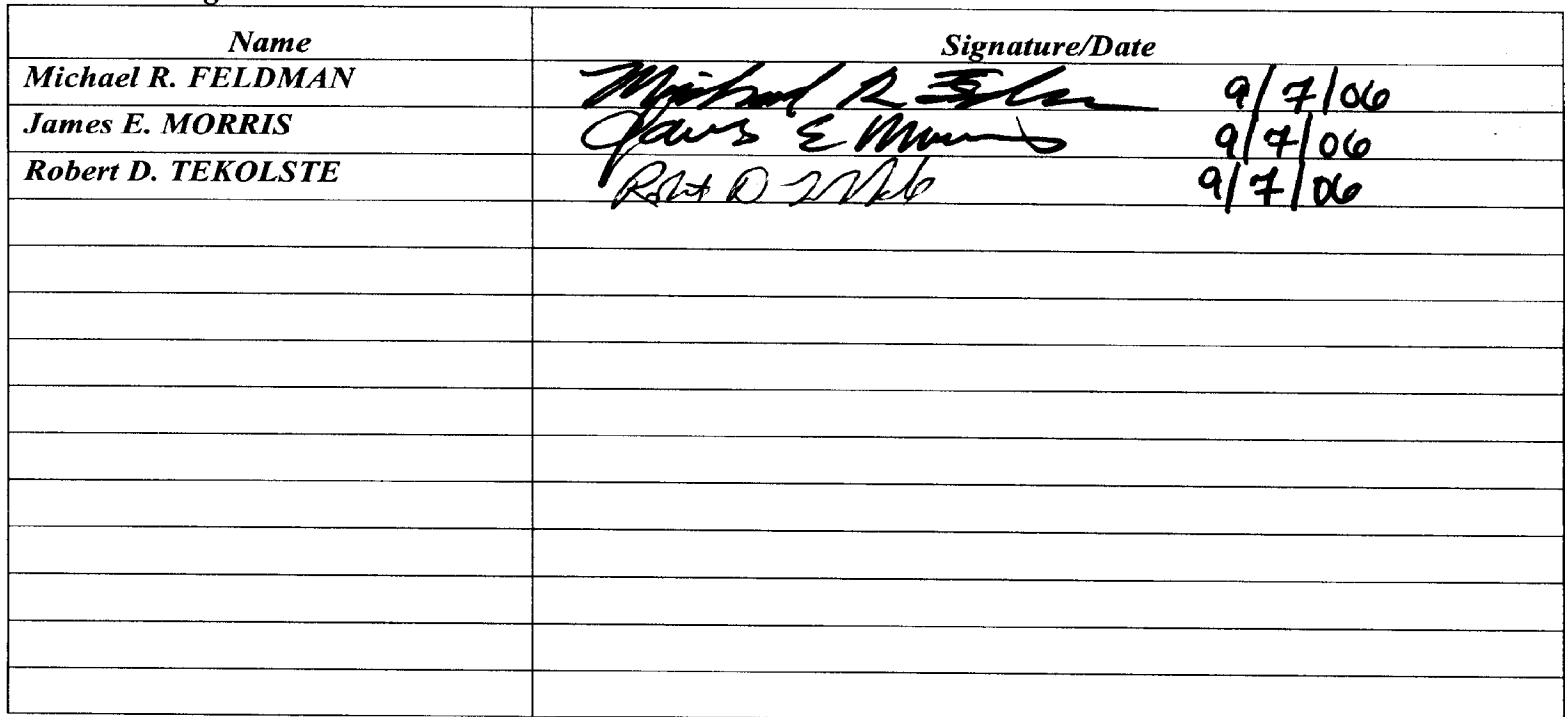 Name Signature/Date
Michael R. FELDMAN Michael R 9/7/06
James E. MORRIS James E Morris 9/7/06
Robert D. TEKOLSTE Robert D 9/7/06